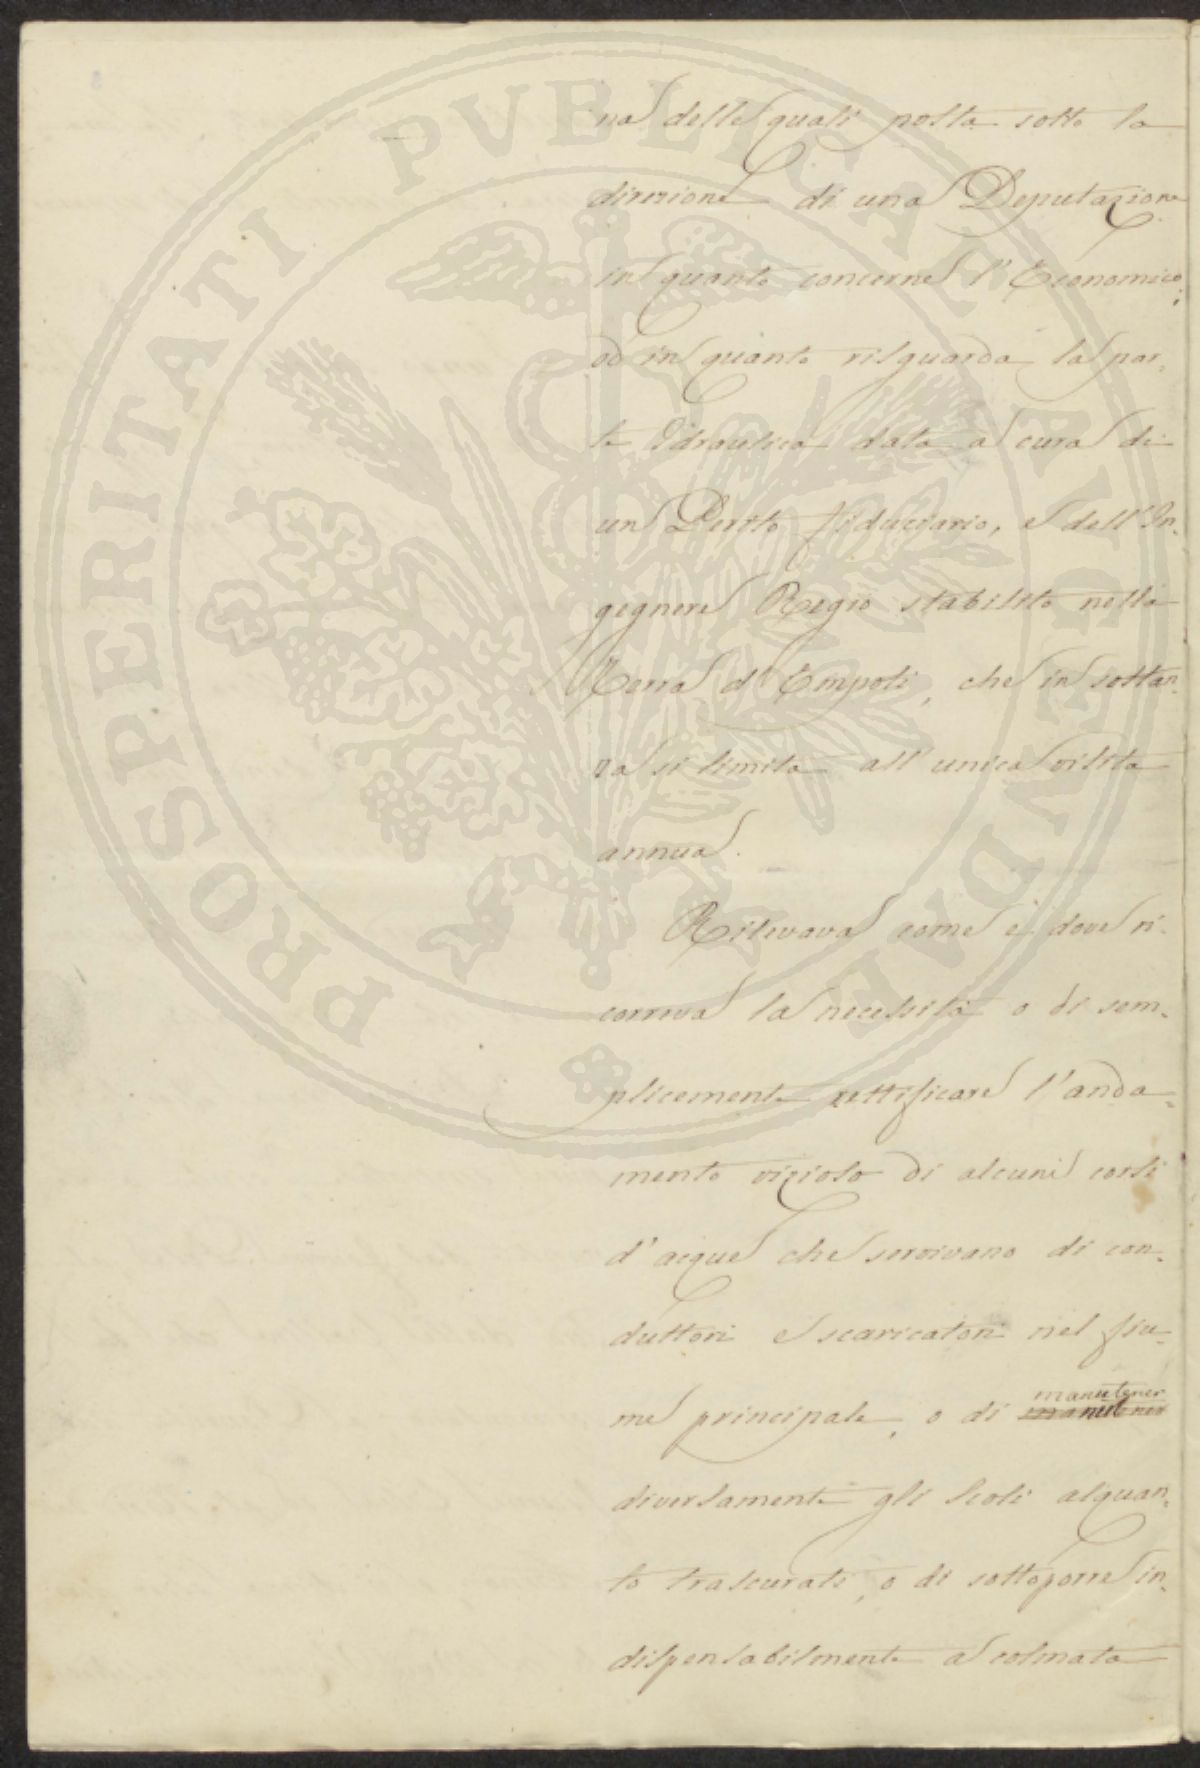 na delle quali posta sotto la
direzione di una Deputazione
in quanto concerne l'Economico;
ed in quanto risguarda la par,
te Idraulica data a cura di
un Perito fiduciario, e dell'In,
gegnere Regio stabilito nella
Terra d'Empoli, che in sostan,
za si limita all'unica visita
annua.
Rilevava come e dove ri,
correva la necessità o di sem,
plicemente rettificare l'anda,
mento vizioso di alcuni corsi
d'acque che servivano di con,
duttori e scaricatori nel fiu,
me principale, o di manutener
diversamente gli scoli alquan,
to trascurati, o di sottoporre in,
dispensabilmente a colmata
PROSPERITATI PVBLICAE AVGENDAE